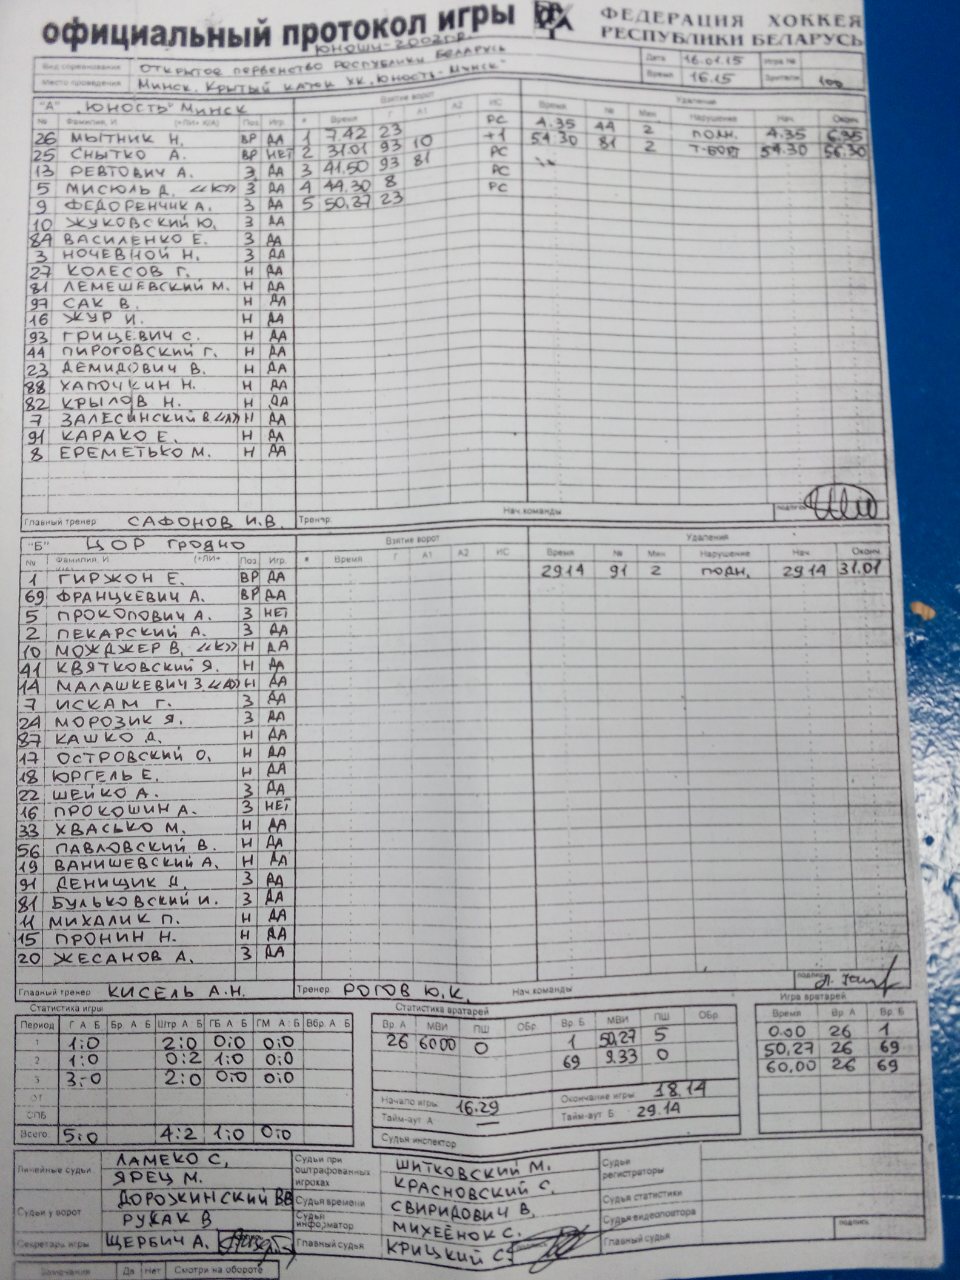 официальный протокол игры ФЕДЕРАЦИЯ ХОККЕЯ
РЕСПУБЛИКИ БЕЛАРУСЬ
ЮНОШИ-2002г.р.
Вид соревнования ОТКРЫТОЕ ПЕРВЕНСТВО РЕСПУБЛИКИ БЕЛАРУСЬ Дата 16.01.15 Игра №
Место проведения МИНСК. КРЫТЫЙ КАТОК ХК „ЮНОСТЬ-МИНСК" Время 16.15 Зрители 100
"А" „ЮНОСТЬ" МИНСК Взятие ворот Удаления
№ Фамилия, И («Л» К/А) Поз Игр # Время Г А1 А2 ИС Время № Мин Нарушение Нач. Оконч
26 МЫТНИК Н. ВР ДА 1 7.42 23 РС 4.35 44 2 ПОДН. 4.35 6.35
25 СНЫТКО А. ВР НЕТ 2 31.01 93 10 +1 54.30 81 2 Т-БОРТ 54.30 56.30
13 РЕВТОВИЧ А. З ДА 3 41.50 93 81 РС
5 МИСЮЛЬ Д. «К» З ДА 4 44.30 8 РС
9 ФЕДОРЕНЧИК А. З ДА 5 50.27 23 РС
10 ЖУКОВСКИЙ Ю. З ДА
89 ВАСИЛЕНКО Е. З ДА
3 НОЧЕВНОЙ Н. З ДА
27 КОЛЕСОВ Г. Н ДА
81 ЛЕМЕШЕВСКИЙ М. Н ДА
97 САК В. Н ДА
16 ЖУР И. Н ДА
93 ГРИЦЕВИЧ С. Н ДА
44 ПИРОГОВСКИЙ Г. Н ДА
23 ДЕМИДОВИЧ В. Н ДА
88 ХАПОЧКИН Н. Н ДА
82 КРЫЛОВ Н. Н ДА
7 ЗАЛЕСИНСКИЙ В. «А» Н ДА
91 КАРАКО Е. Н ДА
8 ЕРЕМЕТЬКО М. Н ДА
Главный тренер САФОНОВ И.В. Тренер Нач. команды подпись
"Б" ЦОР ГРОДНО Взятие ворот Удаления
№ Фамилия, И Поз Игр # Время Г А1 А2 ИС Время № Мин Нарушение Нач Оконч
1 ГИРЖОН Е. ВР ДА 29 14 91 2 ПОДН. 29 14 31.01
69 ФРАНЦКЕВИЧ А. ВР ДА
5 ПРОКОПОВИЧ А. З НЕТ
2 ПЕКАРСКИЙ А. З ДА
10 МОЖДЖЕР В. «К» Н ДА
41 КВЯТКОВСКИЙ Я. Н ДА
14 МАЛАШКЕВИЧ З. «А» Н ДА
7 ИСКАМ Г. З ДА
24 МОРОЗИК Я. З ДА
87 КАШКО Д. Н ДА
17 ОСТРОВСКИЙ О. Н ДА
18 ЮРГЕЛЬ Е. Н ДА
22 ШЕЙКО А. З ДА
16 ПРОКОШИН А. З НЕТ
33 ХВАСЬКО М. Н ДА
56 ПАВЛОВСКИЙ В. Н ДА
19 ВАНИШЕВСКИЙ А. Н ДА
91 ДЕНИЩИК Д. З ДА
81 БУЛЬКОВСКИЙ И. З ДА
11 МИХАЛИК П. Н ДА
15 ПРОНИН Н. Н ДА
20 ЖЕСАНОВ А. З ДА
Главный тренер КИСЕЛЬ А.Н. Тренер РОГОВ Ю.К. Нач. команды подпись
Статистика игры Статистика вратарей Игра вратарей
Период Г А Б Бр А Б Штр А Б ГБ А Б ГМ А Б Вбр. А Б Вр. А МВИ ПШ ОБр Вр. Б МВИ ПШ ОБр Время Вр А Вр. Б
1 1:0 2:0 0:0 0:0 26 60.00 0 1 50,27 5 0.00 26 1
2 1:0 0:2 1:0 0:0 69 9.33 0 50,27 26 69
3 3:0 2:0 0:0 0:0 60,00 26 69
ОТ Начало игры 16.29 Окончание игры 18.14
СПБ Тайм-аут А — Тайм-аут Б 29.14
Всего 5:0 4:2 1:0 0:0 Судья инспектор
Линейные судьи ЛАМЕКО С. Судьи при оштрафованных игроках ШИТКОВСКИЙ М. Судьи регистраторы
ЯРЕЦ М. КРАСНОВСКИЙ С.
Судьи у ворот ДОРОЖИНСКИЙ ВВ Судья времени СВИРИДОВИЧ В. Судья статистики
РУХАК В Судья информатор МИХЕЁНОК С. Судья видеоповтора
Секретарь игры ЩЕРБИЧ А. Главный судья КРИЦКИЙ С. Главный судья подпись
Замечания Да Нет Смотри на обороте